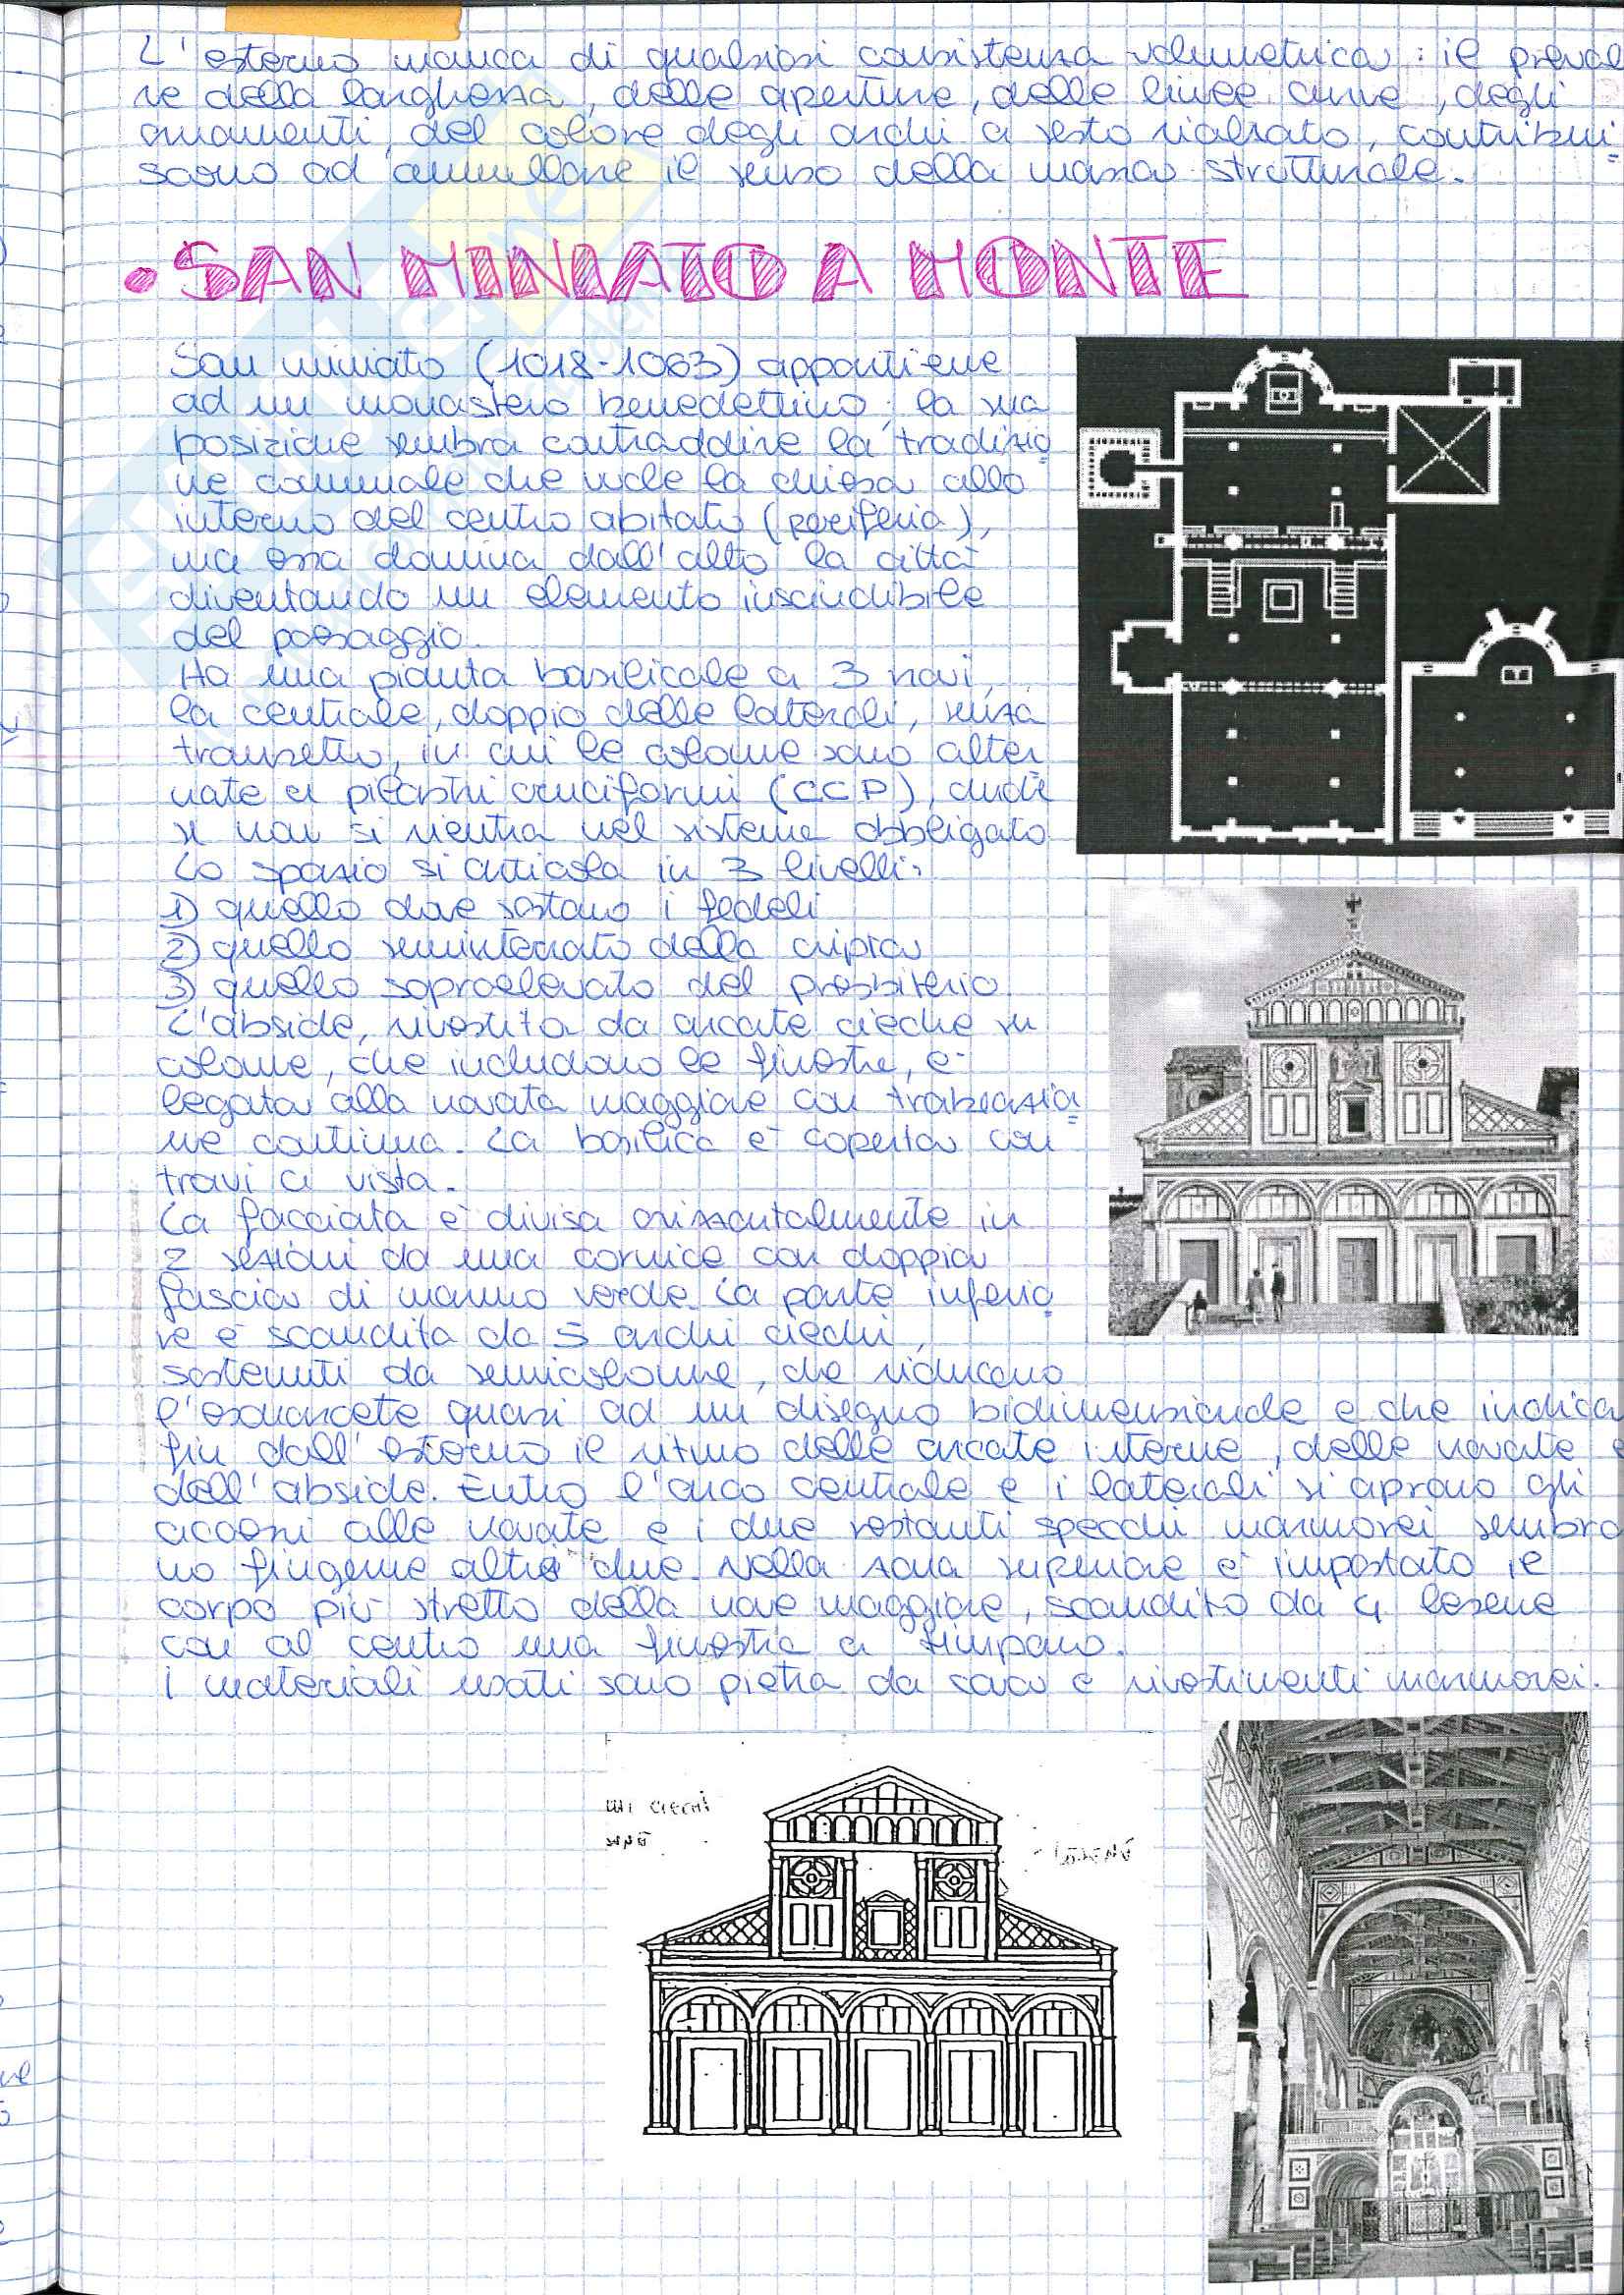 L'esterno manca di qualsiasi consistenza volumetrica: il preval
re della larghezza, delle aperture, delle linee curve, degli
ornamenti, del colore degli archi a sesto rialzato, contribui
scono ad annullare il senso della massa strutturale.
• SAN MINIATO A MONTE
San miniato (1018-1063) appartiene
ad un monastero benedettino; la sua
posizione sembra contraddire la tradizio
ne comunale che vede la chiesa allo
interno del centro abitato (periferia),
ma essa domina dall'alto la città
diventando un elemento inscindibile
del paesaggio.
Ha una pianta basilicale a 3 navi,
la centrale, doppio delle laterali, senza
transetto, in cui le colonne sono alter
nate a pilastri cruciformi (CCP), anche
se non si rientra nel sistema obbligato.
Lo spazio si articola in 3 livelli:
1) quello dove sostano i fedeli
2) quello seminterrato della cripta
3) quello sopraelevato del presbiterio.
L'abside, rivestita da arcate cieche su
colonne, che includono le finestre, è
legata alla navata maggiore con trabeazio
ne continua. La basilica è coperta con
travi a vista.
La facciata è divisa orizzontalmente in
2 sezioni da una cornice con doppia
fascia di marmo verde. La parte inferio
re è scandita da 5 archi ciechi,
sostenuti da semicolonne, che riducono
l'esarcate quasi ad un disegno bidimensionale e che indica
fin dall'esterno il ritmo delle arcate interne, delle navate e
dell'abside. Entro l'arco centrale e i laterali si aprono gli
accessi alle navate e i due restanti specchi marmorei sembra
no fingerne altre due. Nella zona superiore è impostato il
corpo più stretto della nave maggiore, scandito da 4 lesene
con al centro una finestra a timpano.
I materiali usati sono pietra da cava e rivestimenti marmorei.
lesene